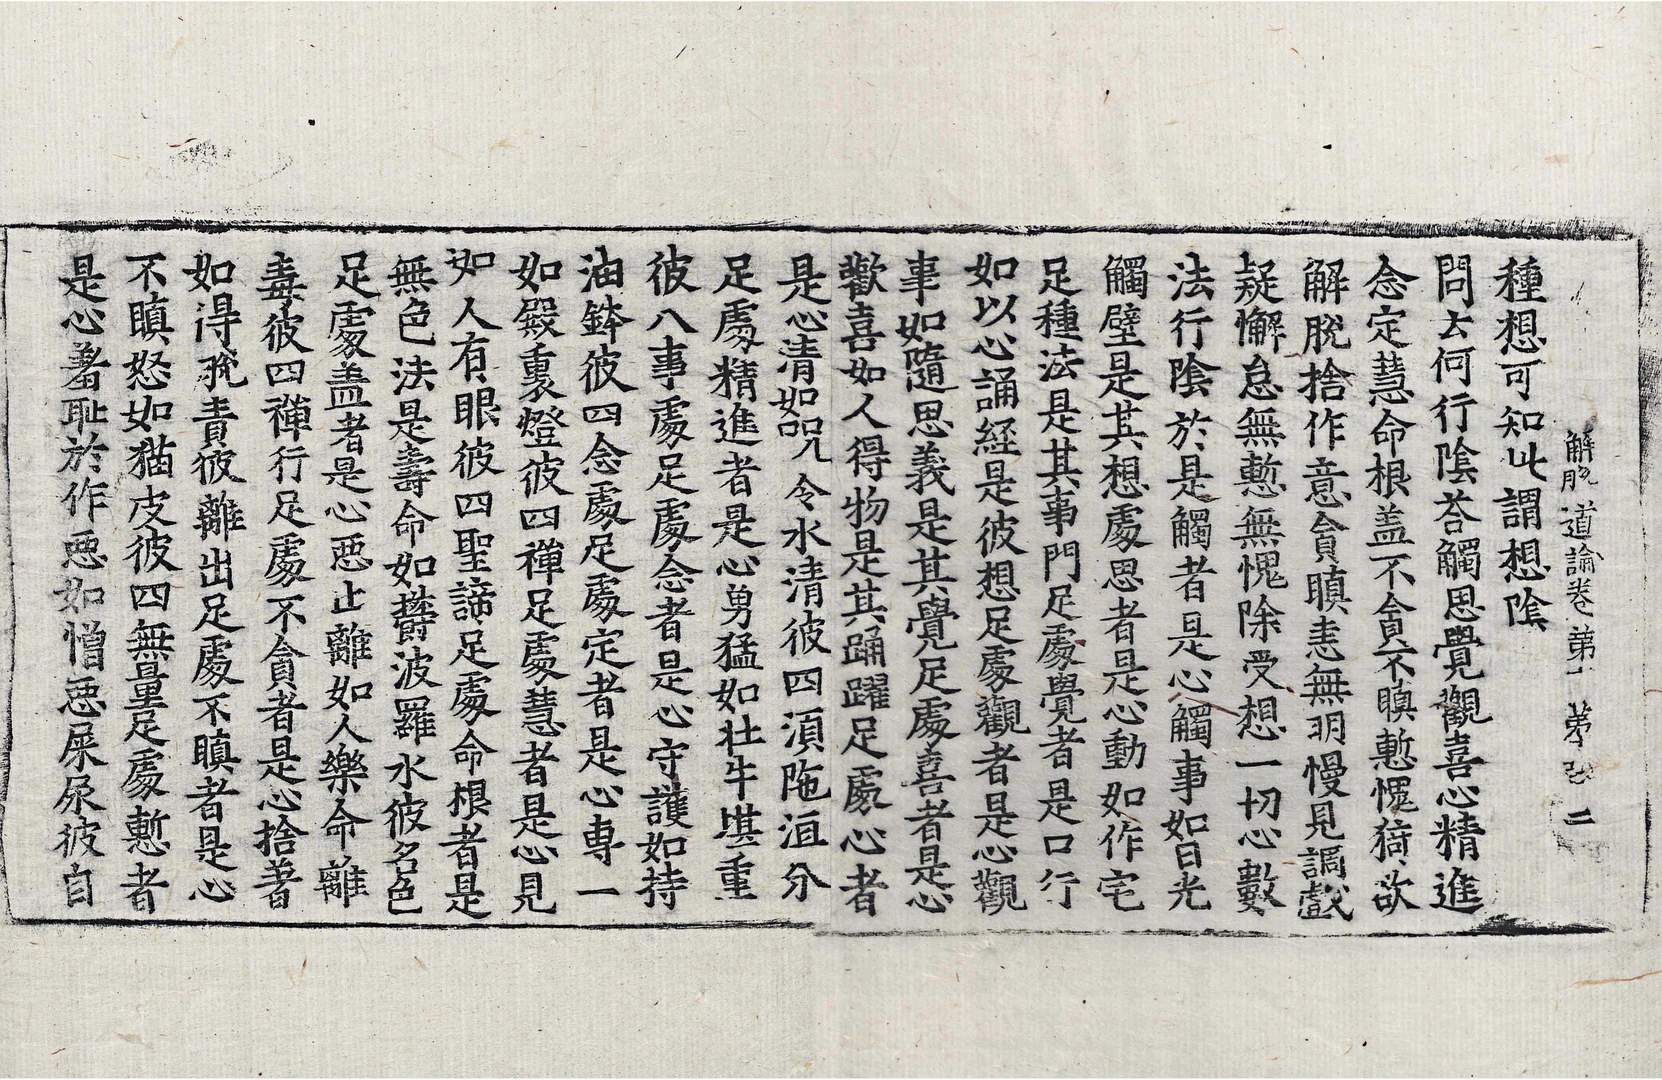 解脫道論卷第十 第二張 二
種想可知此謂想陰
問云何行陰荅觸思覺觀喜心精進
念定慧命根盖不貪不瞋慙愧猗欲
解脫捨作意貪瞋恚無明慢見調戲
疑懈怠無慙無愧除受想一切心數
法行陰於是觸者是心觸事如日光
觸壁是其想處思者是心動如作宅
足種法是其事門足處覺者是口行
如以心誦経是彼想足處觀者是心觀
事如隨思義是其覺足處喜者是心
歡喜如人得物是其踊躍足處心者
是心清如呪令水清彼四須陁洹分
足處精進者是心勇猛如壮牛堪重
彼八事處足處念者是心守護如持
油鉢彼四念處足處定者是心専一
如殿裏燈彼四禪足處慧者是心見
如人有眼彼四聖諦足處命根者是
無色法是壽命如欝波羅水彼名色
足處盖者是心惡止離如人樂命離
毒彼四禪行足處不貪者是心捨著
如得脫責彼離出足處不瞋者是心
不瞋怒如猫皮彼四無量足處慙者
是心羞恥於作惡如憎惡屎尿彼自